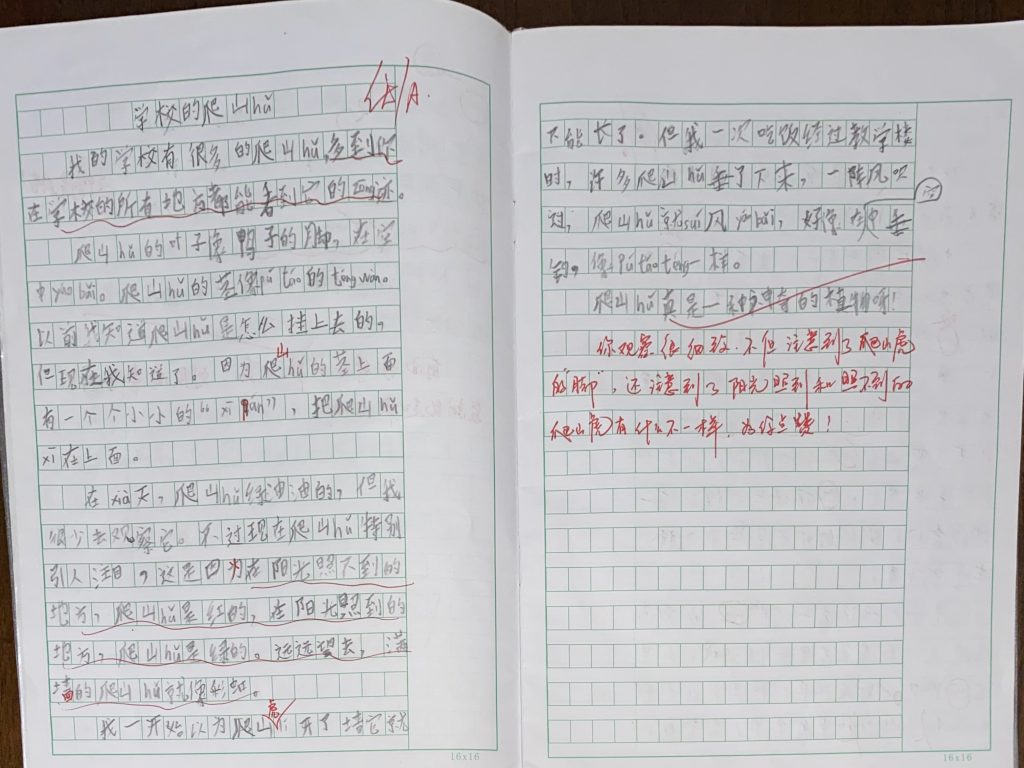 学校的爬山hǔ
优 A.
我的学校有很多的爬山hǔ,多到
在学校的所有地方都能看到它的zōng迹。
爬山hǔ的叶子像鸭子的脚,在空
中yáo bǎi。爬山hǔ的茎像pú táo的téng wàn。
以前我知道爬山hǔ是怎么挂上去的,
但现在我知道了。因为爬山hǔ的茎上面
有一个个小小的“xī pán”,把爬山hǔ
xī在上面。
在xià天,爬山hǔ绿油油的,但我
很少去观察它。不过现在爬山hǔ特别
引人注目,这是因为在阳光照不到的
地方,爬山hǔ是红的,在阳光照到的
地方,爬山hǔ是绿的。远远望去,满
墙的爬山hǔ就像彩虹。
我一开始以为爬山虎,开了墙它就
不能长了。但我一次吃饭经过教学楼
时,许多爬山hǔ垂了下来,一阵风吹
过,爬山hǔ就suí风yáo bǎi,好像在垂
钓,像pú táo téng一样。
爬山hǔ真是一种神奇的植物啊!
你观察很细致,不但注意到了爬山虎
的“脚”,还注意到了阳光照到和照不到的
爬山虎有什么不一样,为你点赞!
16x16
16x16